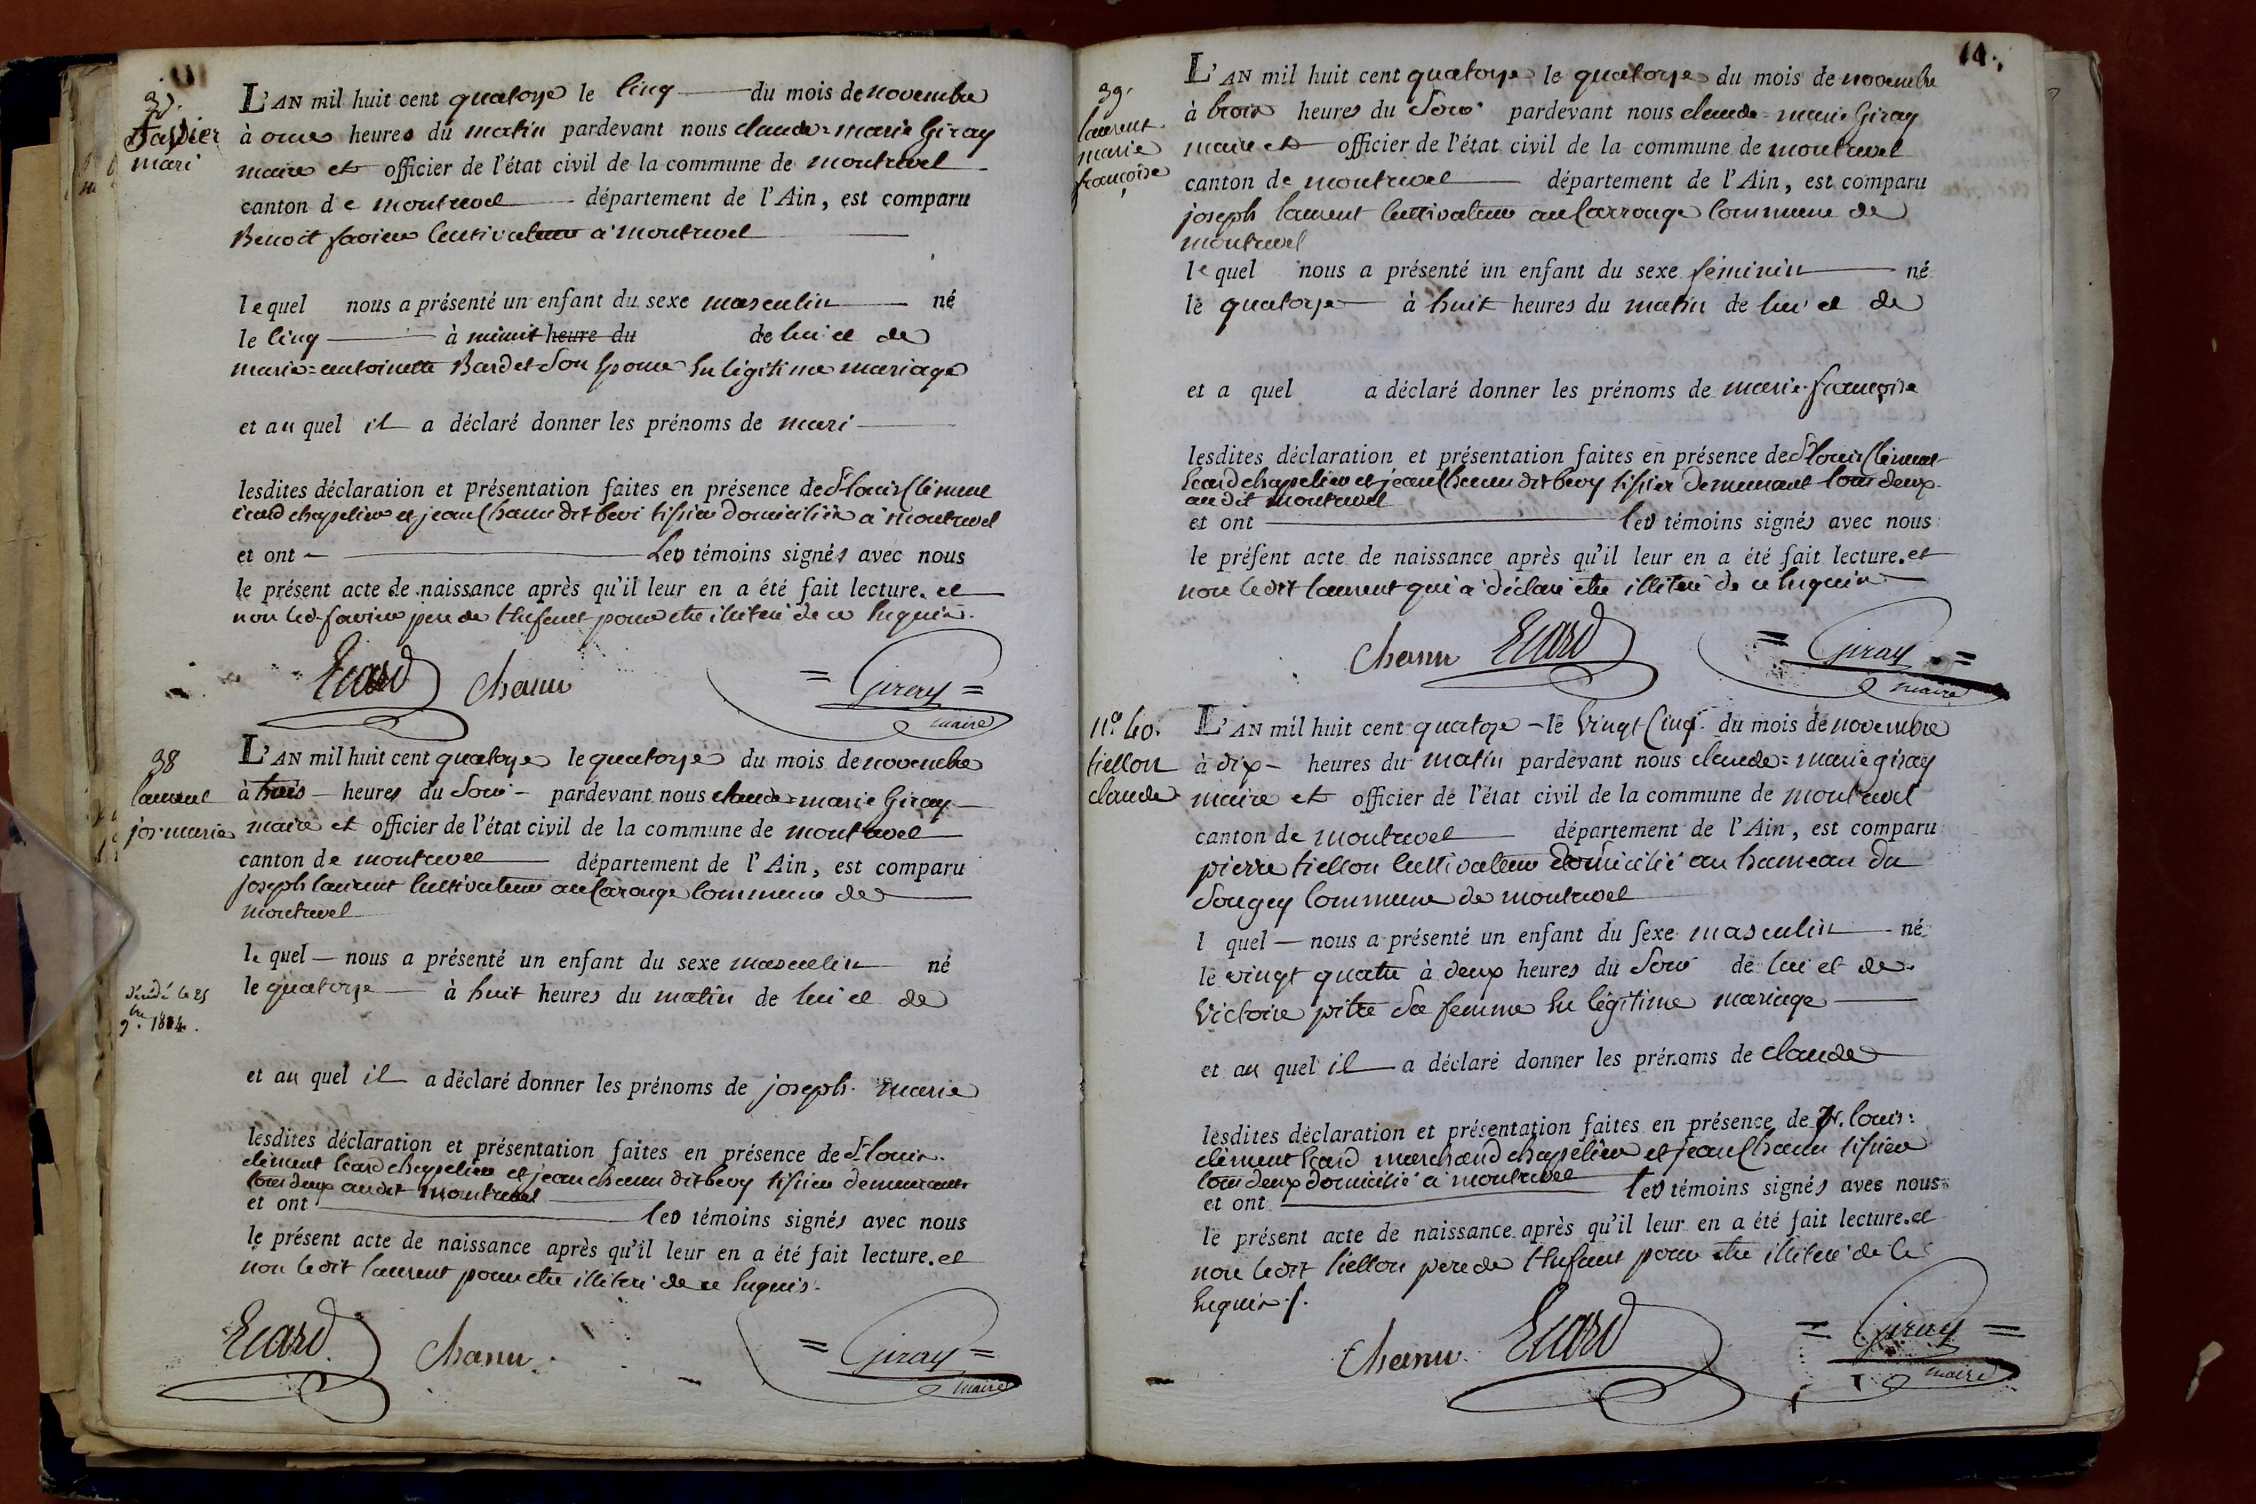 37.
favier
mari
L'AN mil huit cent quatorze le Cinq du mois de novembre
à onze heures du matin pardevant nous claude=marie Giray
maire et officier de l'état civil de la commune de montrevel
canton de montrevel département de l'Ain, est comparu
Benoit favier Cultivateur à montrevel
lequel nous a présenté un enfant du sexe masculin né
le Cinq à minuit heure du de lui et de
marie=antoinette Bardet Son Epouse En légitime mariage
et au quel il a déclaré donner les prénoms de mari
lesdites déclaration et présentation faites en présence de Sr louis Clément
Ecard chapelier et jean Chanu dit bevi tissier domiciliés à montrevel
et ont Les témoins signés avec nous
le présent acte de naissance après qu'il leur en a été fait lecture. et
non led. favier pere de l'Enfant pour etre illiteré de ce Enquis.
Ecard Chanu = Giray =
maire
38
laurent
jos. marie
décédé le 25
9.bre 1814.
L'AN mil huit cent quatorze le quatorze du mois de novembre
à trois heures du Soir pardevant nous claude=marie Giray
maire et officier de l'état civil de la commune de montrevel
canton de montrevel département de l'Ain, est comparu
joseph laurent Cultivateur au Carouge Commune de
montrevel
le quel nous a présenté un enfant du sexe masculin né
le quatorze à huit heures du matin de lui et de
et au quel il a déclaré donner les prénoms de joseph marie
lesdites déclaration et présentation faites en présence de Sr louis
clément Ecard chapelier et jean chanu dit bevy tissier demeurants
tous deux audit montrevel
et ont les témoins signés avec nous
le présent acte de naissance après qu'il leur en a été fait lecture. et
non ledit laurent pour etre illiteré de ce Enquis.
Ecard Chanu = Giray =
maire
14.
39.
laurent
marie
françoise
L'AN mil huit cent quatorze le quatorze du mois de novembre
à trois heures du Soir pardevant nous claude=marie Giray
maire et officier de l'état civil de la commune de montrevel
canton de montrevel département de l'Ain, est comparu
joseph laurent Cultivateur au Carrouge Commune de
montrevel
le quel nous a présenté un enfant du sexe féminin né
le quatorze à huit heures du matin de lui et de
et a quel a déclaré donner les prénoms de marie françoise
lesdites déclaration et présentation faites en présence de Sr louis Clément
Ecard chapelier et jean Chanu dit bevy tissier demeurant tous deux
audit montrevel
et ont les témoins signés avec nous
le présent acte de naissance après qu'il leur en a été fait lecture. et
non ledit laurent qui a déclaré etre illiteré de ce Enquis.
Chanu Ecard = Giray =
maire
n.º 40.
tiellon
claude
L'AN mil huit cent quatoze le Vingt Cinq du mois de novembre
à dix heures du matin pardevant nous claude=marie giray
maire et officier de l'état civil de la commune de montrevel
canton de montrevel département de l'Ain, est comparu
pierre tiellon Cultivateur domicilié au hameau du
Sougey Commune de montrevel
l quel nous a présenté un enfant du sexe masculin né
le vingt quatre à deux heures du Soir de lui et de
Victoire pitre Sa femme En légitime mariage
et au quel il a déclaré donner les prénoms de claude
lesdites déclaration et présentation faites en présence de Sr. louis=
clément Ecard marchand chapelier et jean Chanu tissier
tous deux domicilié à montrevel
et ont les témoins signés avec nous
le présent acte de naissance après qu'il leur en a été fait lecture. et
non ledit tiellon pere de l'Enfant pour etre illiteré de Ce
Enquis ./.
Chanu Ecard = Giray =
maire